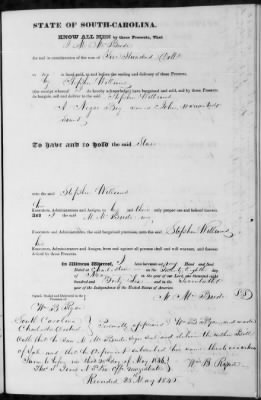 STATE OF SOUTH-CAROLINA.
KNOW ALL MEN by these Presents, That
I M. McBride
for and in consideration of the sum of Five Hundred Dolls
to me in hand paid, at and before the sealing and delivery of these Presents,
by Stephen Williams
(the receipt whereof I do hereby acknowledge) have bargained and sold, and by these Presents, do
bargain, sell and deliver to the said Stephen Williams
A Negro Boy named John warranted
sound
To have and to hold the said Slave
unto the said Stephen Williams
his
Executors, Administrators and Assigns, to his and their only proper use and behoof forever.
And I the said M. McBride my
Executors, Administrators, the said bargained premises, unto the said Stephen Williams
his
Executors, Administrators and Assigns, from and against all persons shall and will warrant, and forever
defend by these Presents.
In Witness Whereof, I have hereunto set my Hand and Seal
Dated at Charleston on the Twenty Eighth day
of in the year of our Lord one thousand eight
hundred and Forty Six and in the Seventieth
year of the Independence of the United States of America.
Signed, Sealed and Delivered in the
Presence of
M. McBride
Wm B. Ryan
South Carolina
Charleston District
Personally appeared Wm B. Ryan and made
Oath that he saw M. McBride sign seal and deliver the within Bill
of Sale and that he Deponent subscribed his name thereto as witness
Sworn to before me this 28 day of May 1846
Wm B. Ryan
Recorded 28 May 1846